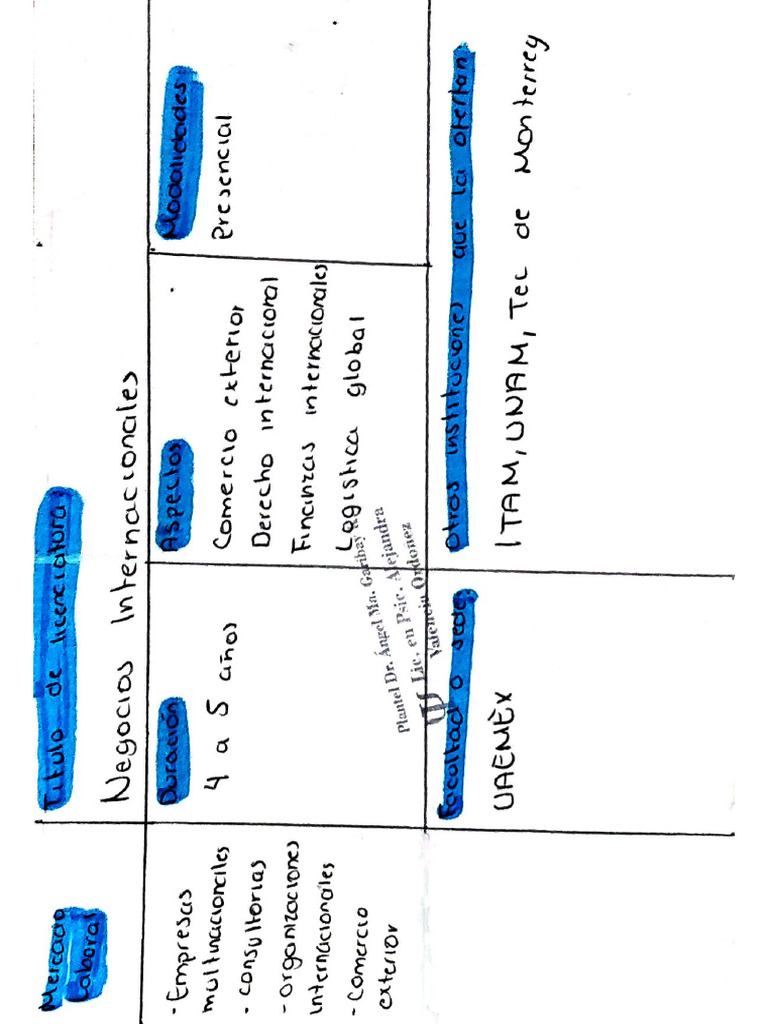 Mercado
Laboral
- Empresas
multinacionales
- consultorias
- organizaciones
internacionales
- Comercio
exterior
Titulo de licenciatura:
Negocios Internacionales
Duración:
4 a 5 años
Aspectos
Comercio exterior
Derecho internacional
Finanzas internacionales
Logistica global
Modalidades:
Presencial
Plantel Dr. Ángel Ma. Garibay
Lic. en Psic. Alejandra
Valencia Ordonez
Facultad o sede:
UAEMÉX
Otras instituciones que la ofertan:
ITAM, UNAM, Tec de Monterrey